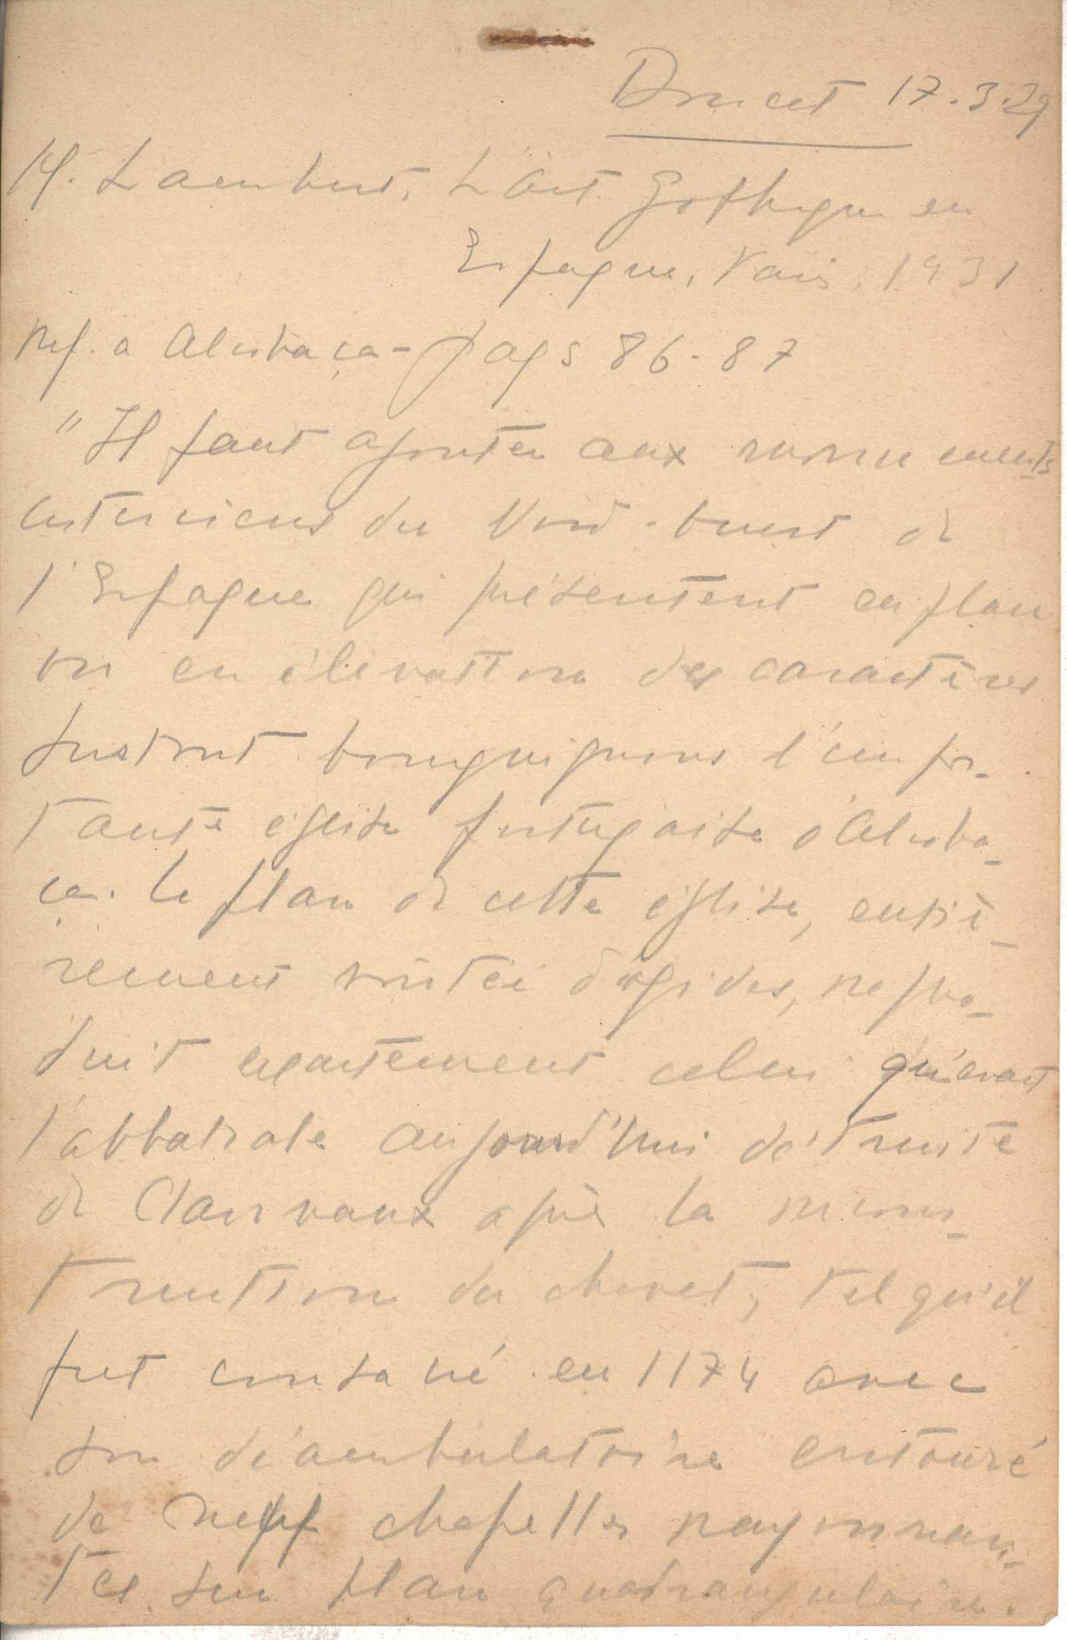 Doucet 17.3.29
M. Lambert, L'Art Gothique en
Espagne, Paris, 1931
Ref. a Alcobaça - pags 86-87
"Il faut ajouter aux monuments
cisterciens du Nord-Ouest de
l'Espagne qui présentent en plan
ou en élévation des caractères
surtout bourguignons l'impor-
tante église portugaise d'Alcoba-
ça. Le plan de cette église, entiè-
rement voûtée d'ogives, repro-
duit exactement celui qu'avait
l'abbatiale aujourd'hui détruite
de Clairvaux après la recons-
truction du chevet, tel qu'il
fut consacré en 1174 avec
son déambulatoire entouré
de neuf chapelles rayonnan-
tes sur plan quadrangulaire.